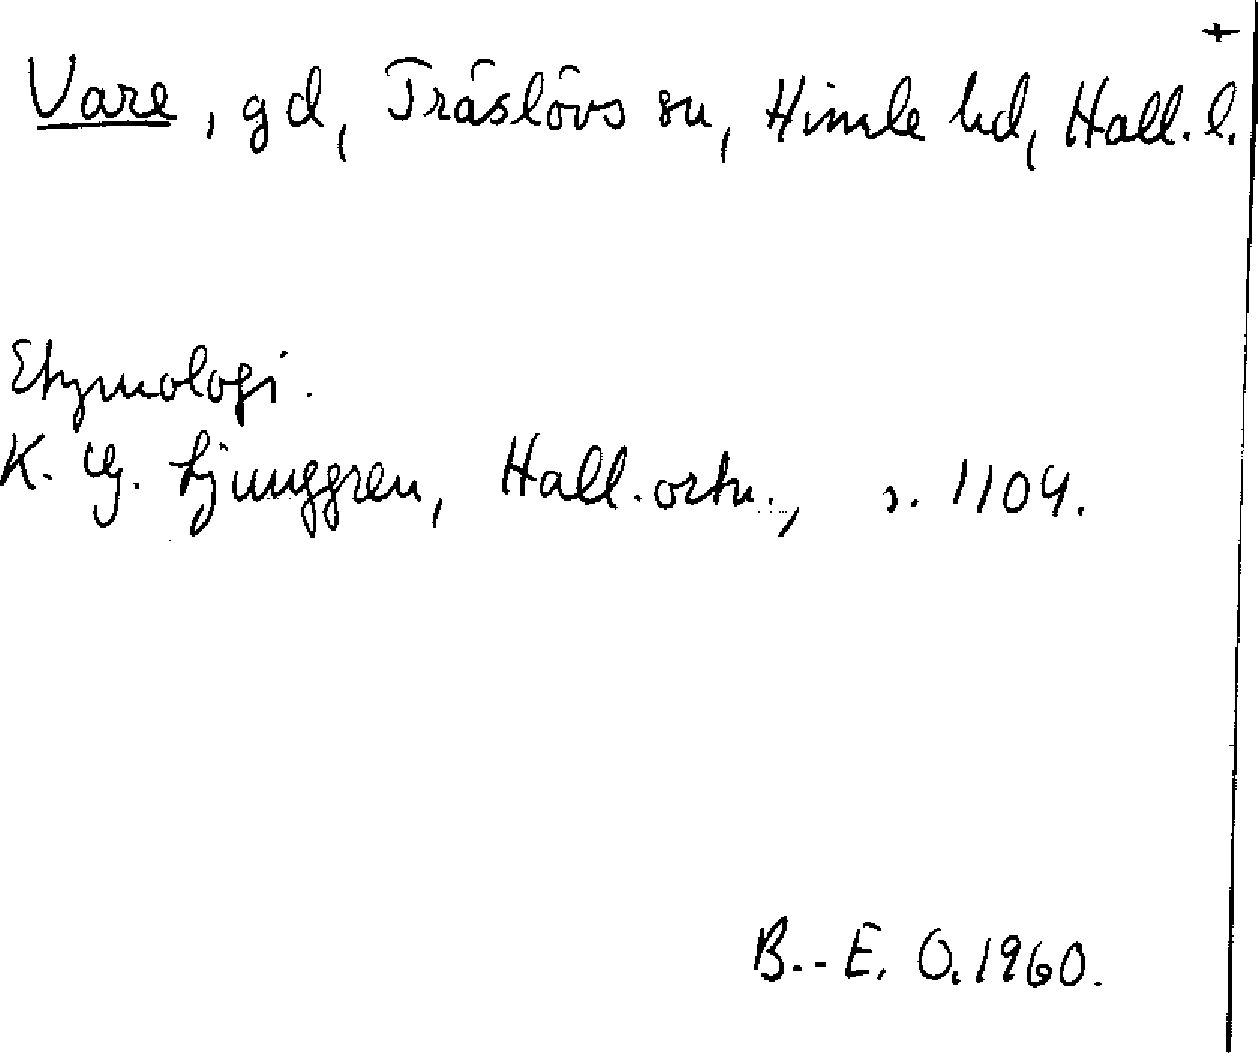 +
Vare, gd, Träslövs sn, Himle hd, Hall. l.
Etymologi.
K. G. Ljunggren, Hall. ortn., s. 1104.
B.-E. O. 1960.